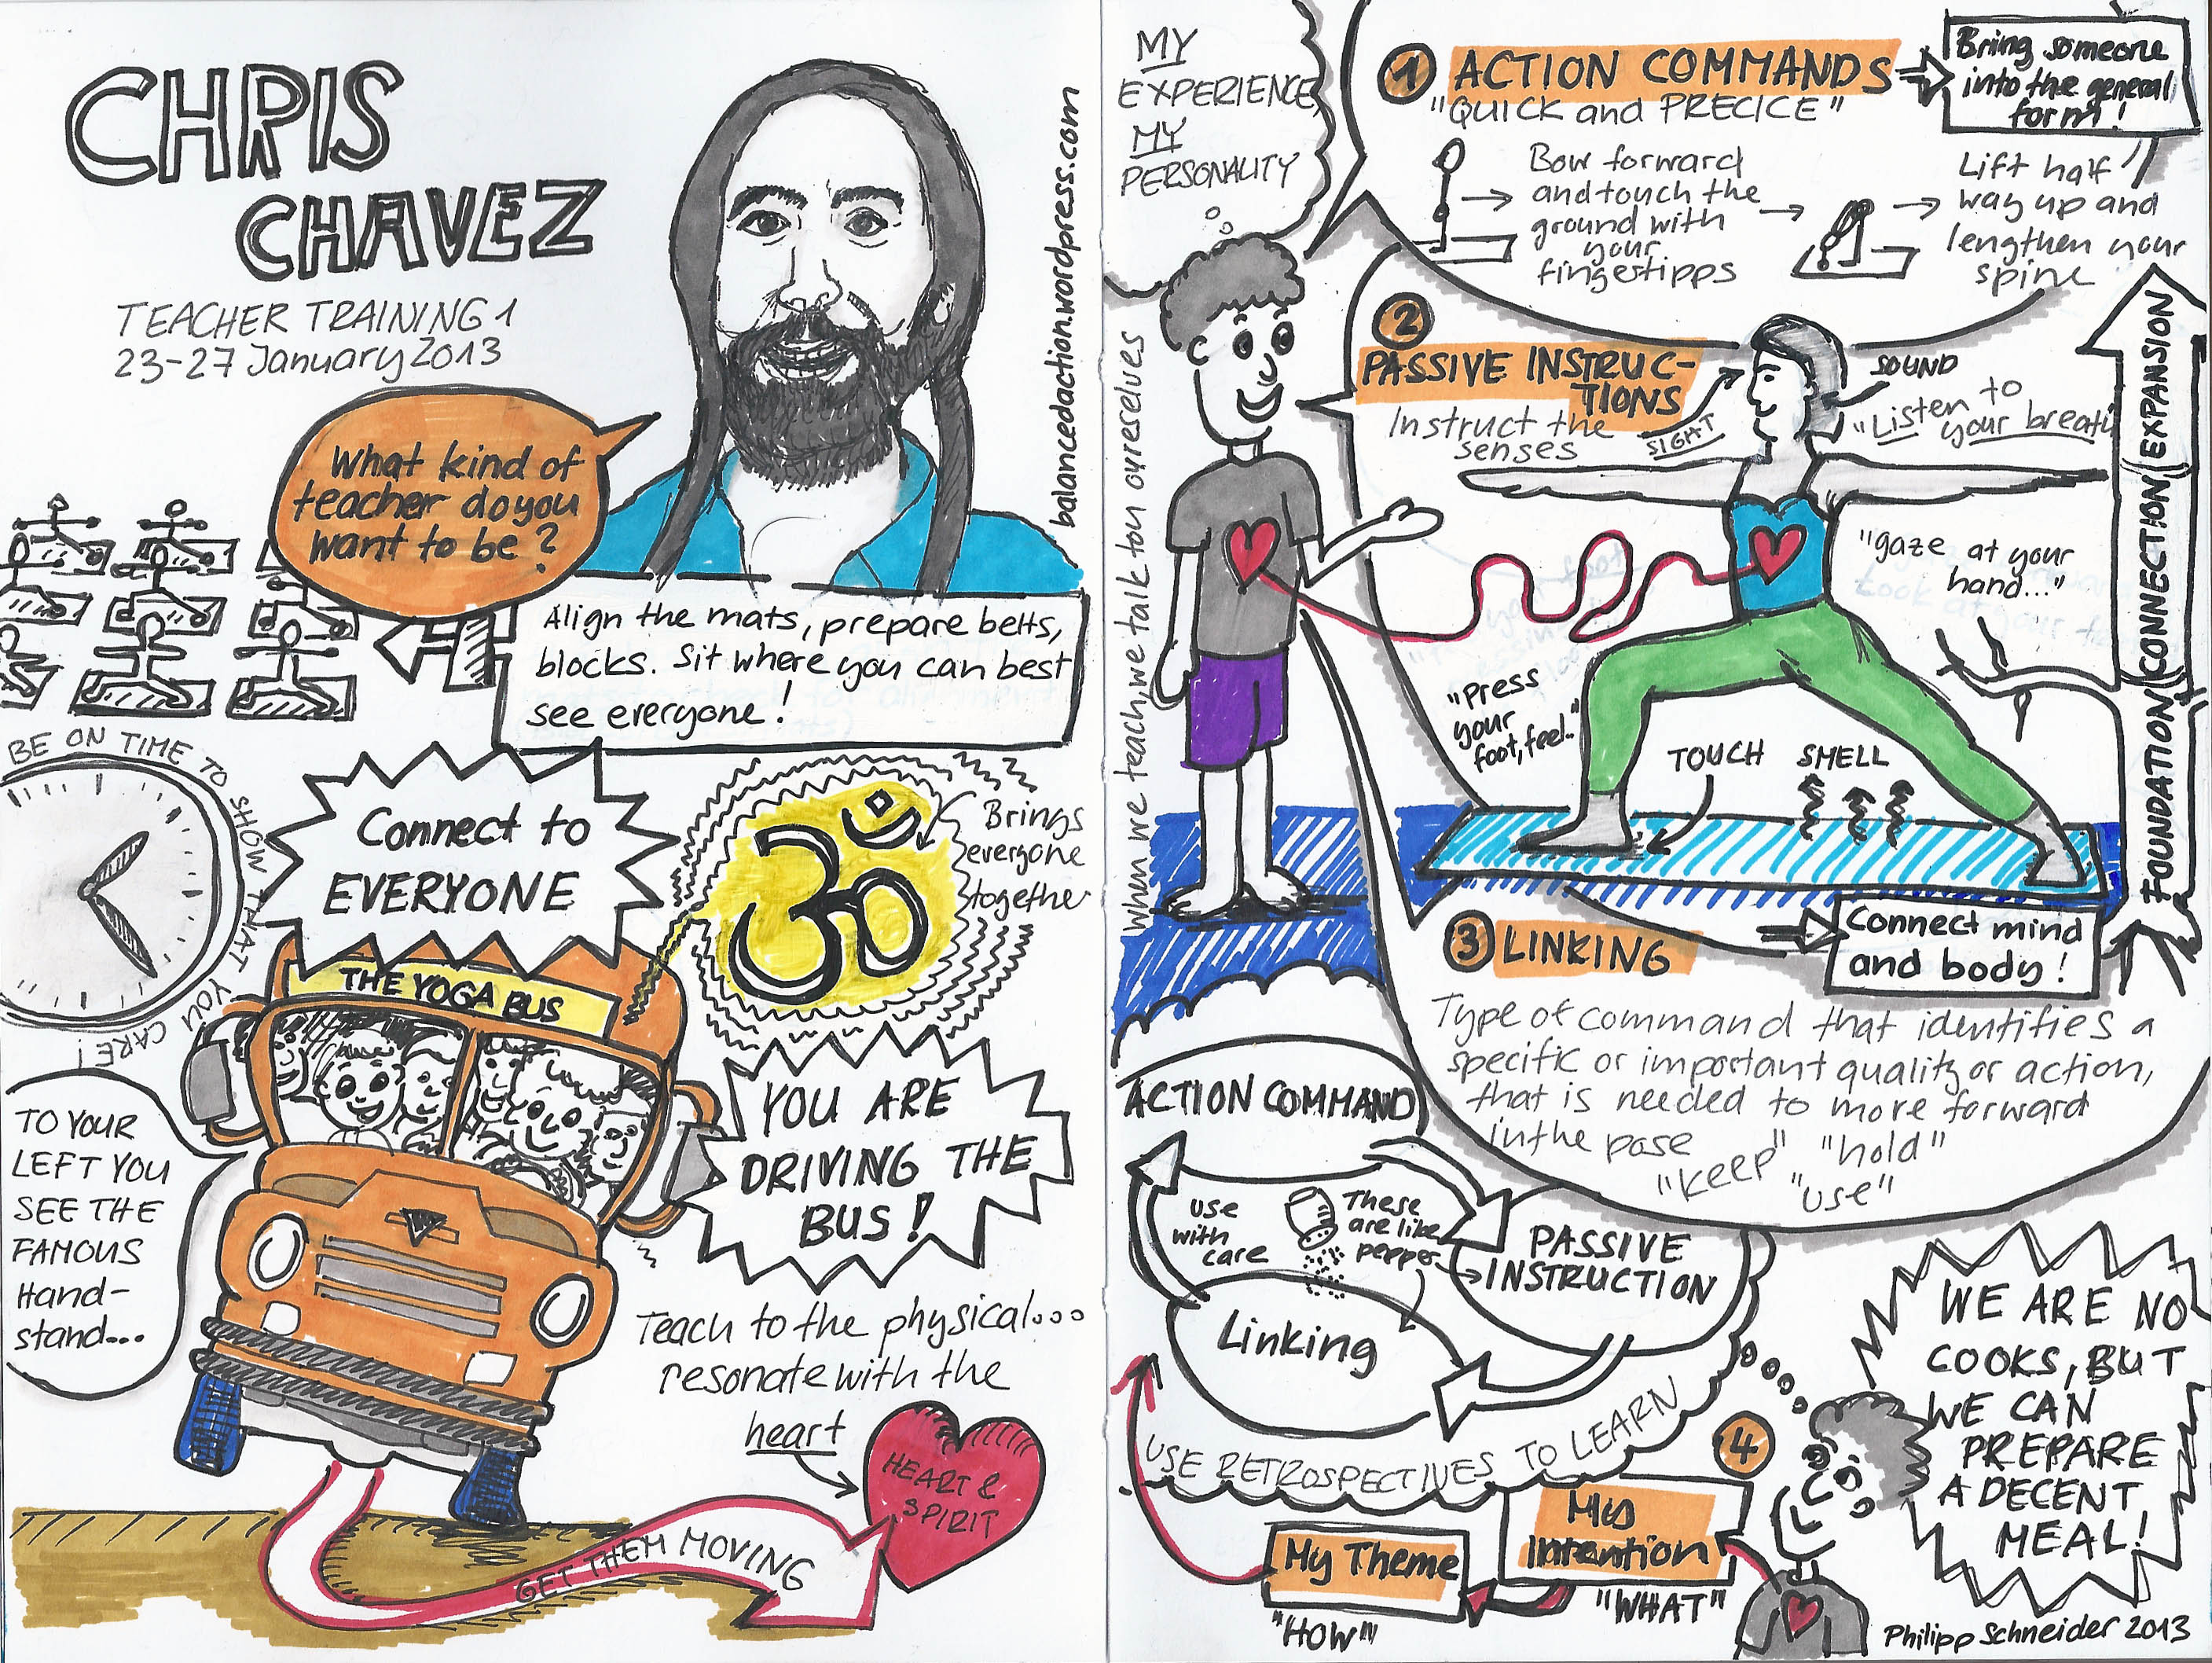 CHRIS
CHAVEZ
TEACHER TRAINING 1
23-27 January 2013
What kind of
teacher do you
want to be?
balancedaction.wordpress.com
Align the mats, prepare belts,
blocks. Sit where you can best
see everyone!
BE ON TIME TO SHOW THAT YOU CARE!
Connect to
EVERYONE
ॐ
Brings
everyone
together
THE YOGA BUS
TO YOUR
LEFT YOU
SEE THE
FAMOUS
Hand-
stand...
YOU ARE
DRIVING THE
BUS!
Teach to the physical...
resonate with the
heart
HEART &
SPIRIT
GET THEM MOVING
MY
EXPERIENCE,
MY
PERSONALITY
when we teach, we talk tou oureselves
1 ACTION COMMANDS
"QUICK and PRECICE"
Bring someone
into the general
form!
Bow forward
and touch the
ground with
your
fingestipps
Lift half
way up and
lengthen your
spine
2
PASSIVE INSTRUC-
TIONS
Instruct the
senses
SIGHT
SOUND
"Listen to
your breath
"gaze at your
hand..."
"Press
your
foot, feel.."
TOUCH
SMELL
FOUNDATION CONNECTION EXPANSION
Connect mind
and body!
3 LINKING
Type of command that identifies a
specific or important quality or action,
that is needed to more forward
in the pose
"keep" "hold"
"use"
ACTION COMMAND
use
with
care
These
are like
pepper
PASSIVE
INSTRUCTION
Linking
USE RETROSPECTIVES TO LEARN
4
My
Intention
"WHAT"
My Theme
"HOW"
WE ARE NO
COOKS, BUT
WE CAN
PREPARE
A DECENT
MEAL!
Philipp Schneider 2013